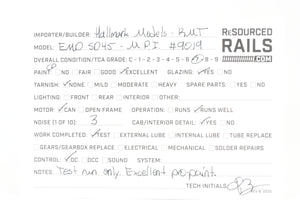 IMPORTER/BUILDER: Hallmark Models - KMT
RESOURCED RAILS .COM
MODEL: EMD SD45 - M.P.I. #9019
OVERALL CONDITION/TCA GRADE: C-1-2-3-4-5-6-7-8-9
PAINT NO FAIR GOOD EXCELLENT GLAZING: YES NO
TARNISH: NONE MILD MODERATE HEAVY SPARE PARTS: YES NO
LIGHTING: FRONT REAR INTERIOR OTHER:
MOTOR: CAN OPEN FRAME OPERATION: RUNS RUNS WELL
NOISE (1 OF 10): 3 CAB/INTERIOR DETAIL: YES NO
WORK COMPLETED: TEST EXTERNAL LUBE INTERNAL LUBE TUBE REPLACE
GEARS/GEARBOX REPLACE ELECTRICAL MECHANICAL SOLDER REPAIRS
CONTROL: DC DCC SOUND SYSTEM
NOTES: Test run only. Excellent pro-paint.
TECH INITIALS: